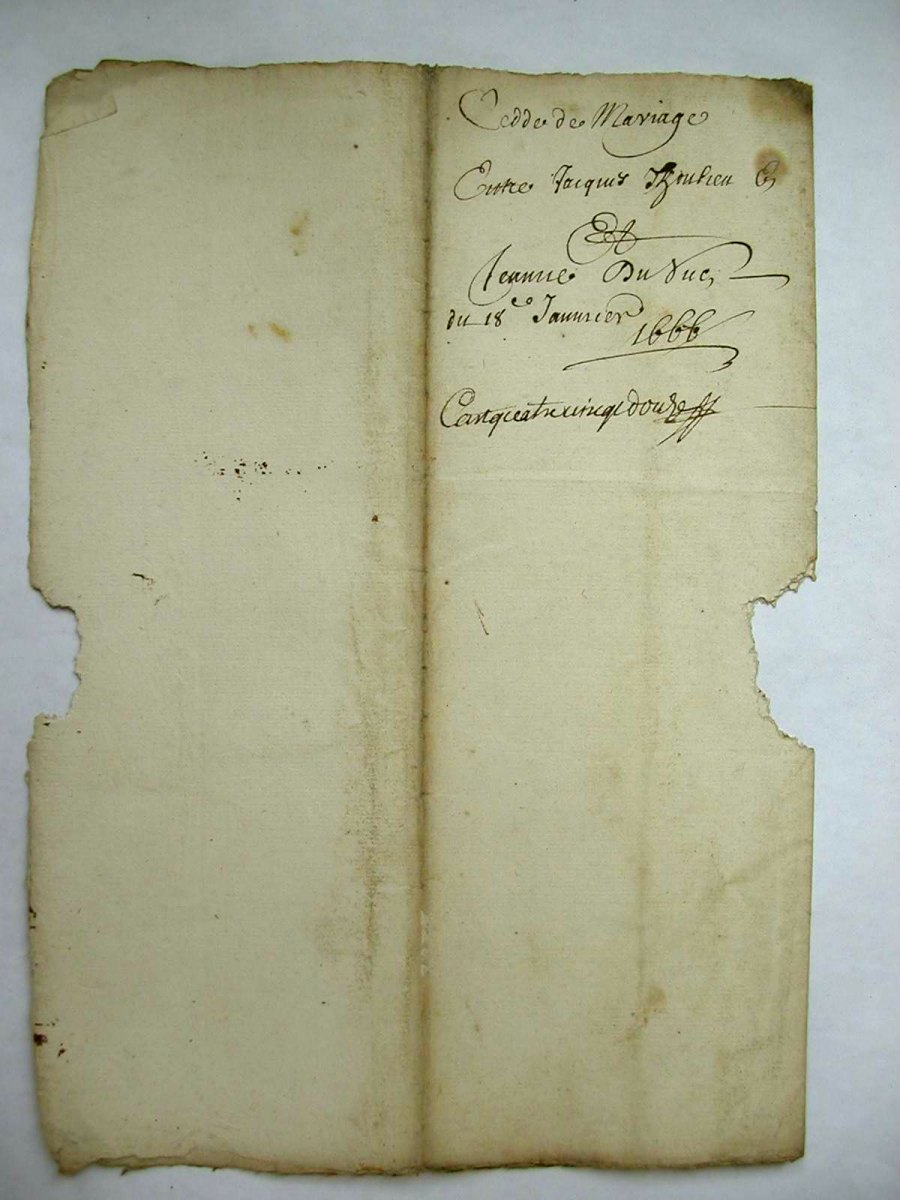 Cedde de Mariage
Entre Jacques
Et
Jeanne Du Vuc
du 18e Januvier
1666
Centquatrevingtdouze